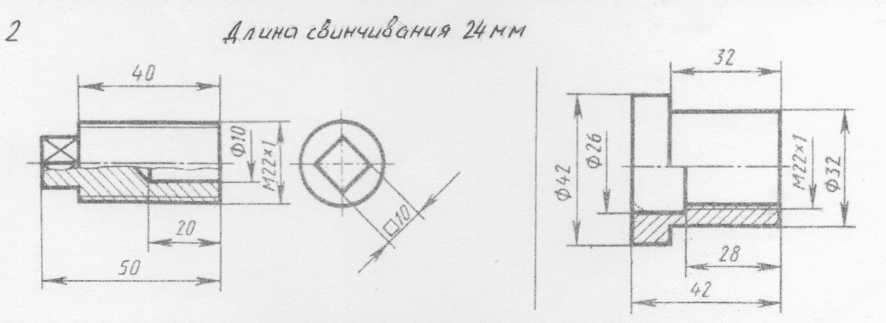 2
Длина свинчивания 24мм
40
Ф10
М22×1
20
50
□10
32
Ф42
Ф26
М22×1
Ф32
28
42